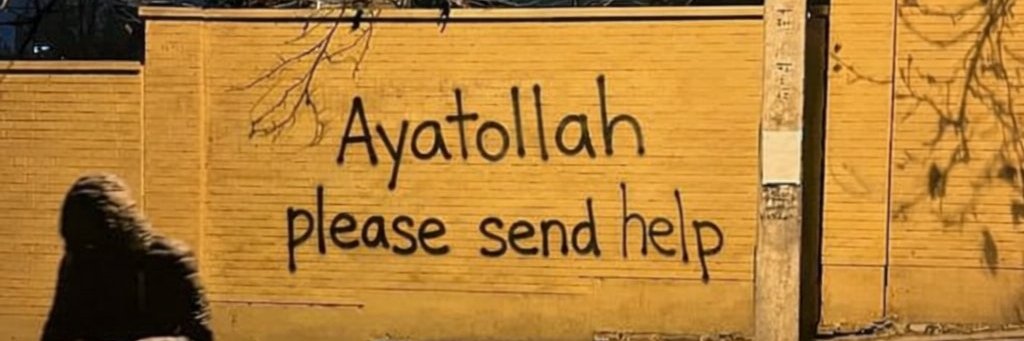 Ayatollah
please send help